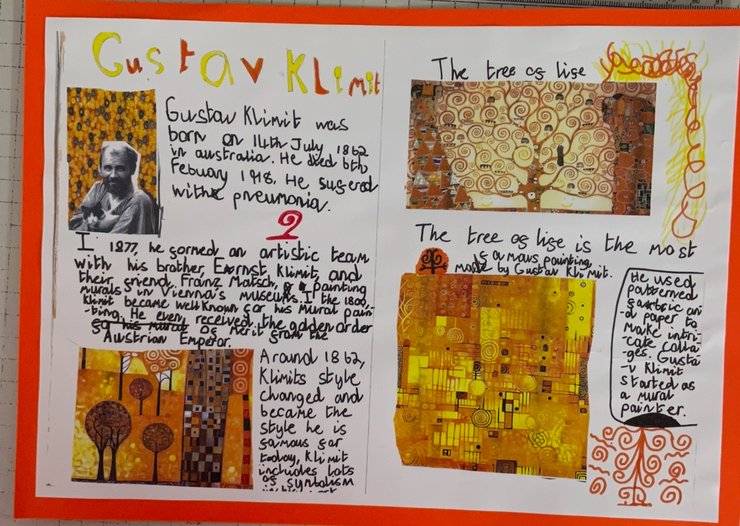 Gustav Klimit
Gustav Klimit was
born on 14th July 1862
in australia. He died 6th
Febuary 1918. He sugered
with pneumonia.
I 1877, he gormed an artistic team
with his brother, Ernst, Klimit, and
their griend, Franz Matsch, painting
murals in Vienna's museums. I the 1800,
Klimit became well known gor his mural pain
-ting. He even received the golden order
go his mural og Merit grom the
Austrian Emperor.
Around 1862,
Klimits style
changed and
became the
style he is
gamous gor
today, Klimit
includes lots
og symbolism
The tree og lige
The tree og lige is the most
gamous painting
made by Gustav Klimit.
He used
patterned
gabric an
-d paper to
make intri
-cate colla
-ges. Gusta
-v Klimit
started as
a mural
painter.